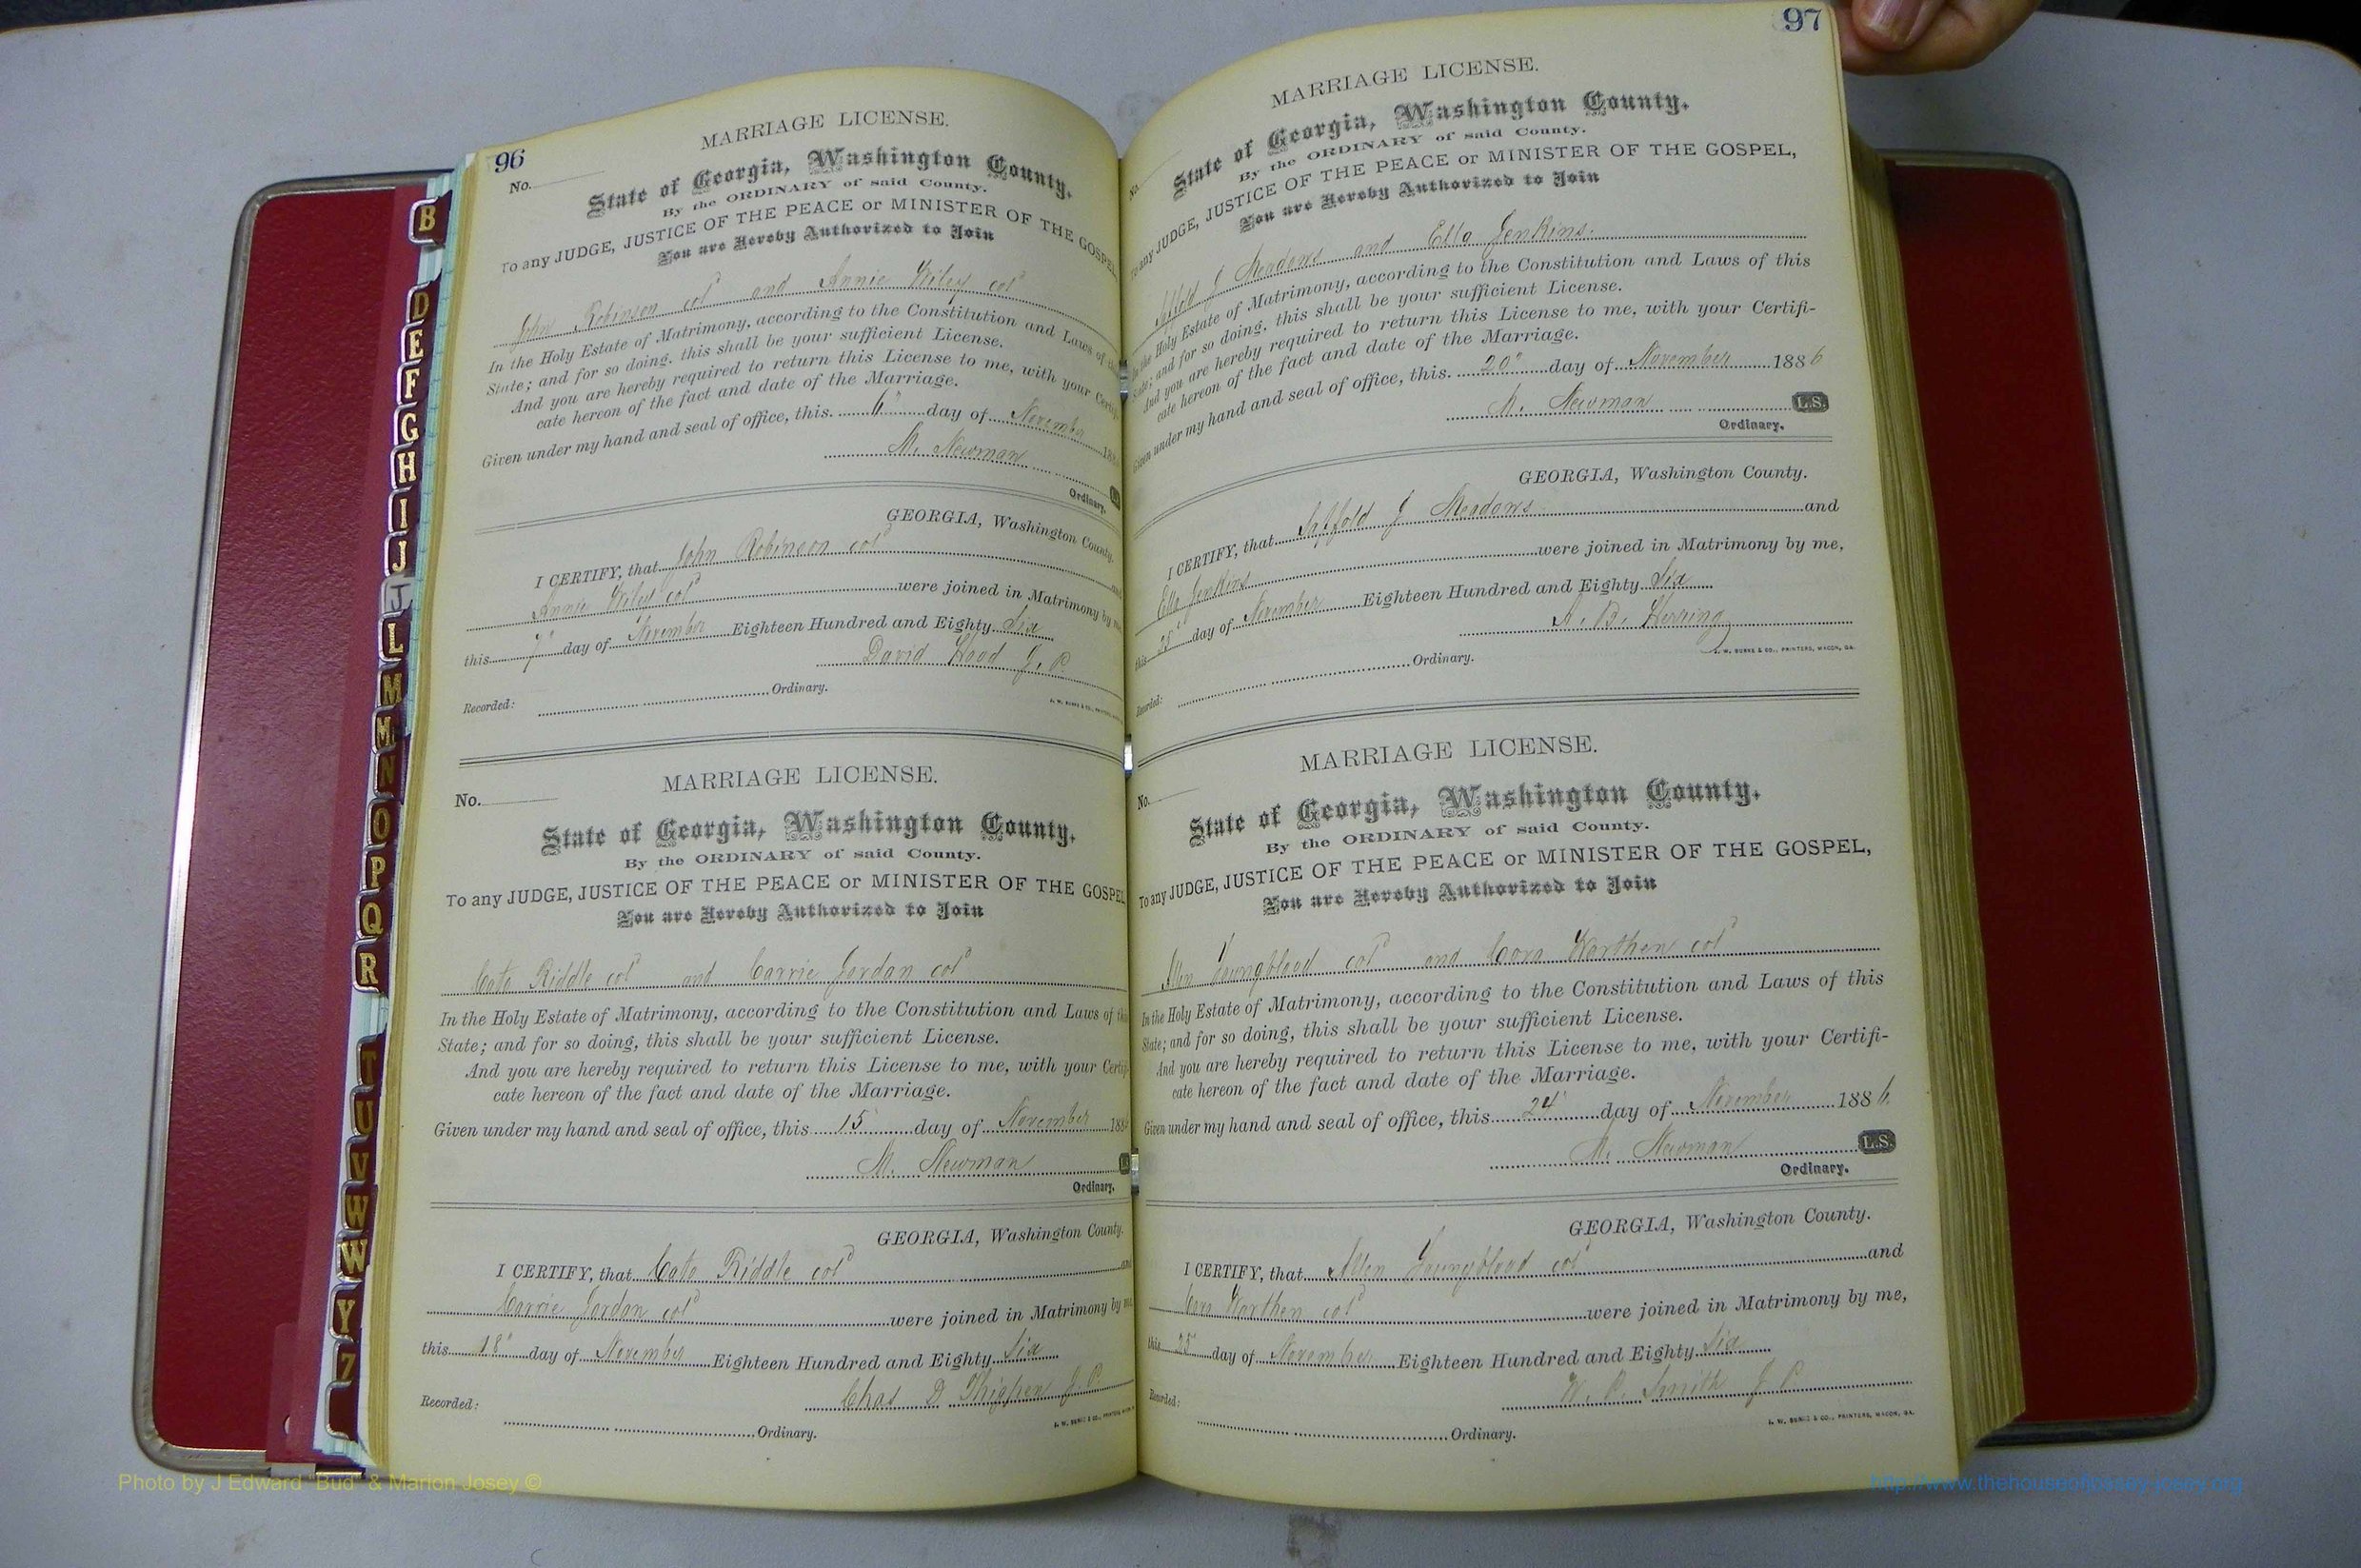 96
MARRIAGE LICENSE.
No.
State of Georgia, Washington County.
By the ORDINARY of said County.
To any JUDGE, JUSTICE OF THE PEACE or MINISTER OF THE GOSPEL
You are Hereby Authorized to Join
John Robinson cold and Annie Wiley cold
In the Holy Estate of Matrimony, according to the Constitution and Laws of
State; and for so doing, this shall be your sufficient License.
And you are hereby required to return this License to me, with your Certifi-
cate hereon of the fact and date of the Marriage.
Given under my hand and seal of office, this 6" day of November 188
M. Newman
Ordinary.
GEORGIA, Washington County.
I CERTIFY, that John Robinson cold
Annie Wiley cold were joined in Matrimony by
this 7" day of November Eighteen Hundred and Eighty Six
David Hood J. P.
Recorded: Ordinary.
MARRIAGE LICENSE.
No.
State of Georgia, Washington County.
By the ORDINARY of said County.
To any JUDGE, JUSTICE OF THE PEACE or MINISTER OF THE GOSPEL
You are Hereby Authorized to Join
Cato Riddle cold and Carrie Jordan cold
In the Holy Estate of Matrimony, according to the Constitution and Laws of
State; and for so doing, this shall be your sufficient License.
And you are hereby required to return this License to me, with your Certifi-
cate hereon of the fact and date of the Marriage.
Given under my hand and seal of office, this 15 day of November 188
M. Newman
Ordinary.
GEORGIA, Washington County.
I CERTIFY, that Cato Riddle cold and
Carrie Jordan cold were joined in Matrimony by me
this 18" day of November Eighteen Hundred and Eighty Six
Chas D Thigpen J. P.
Recorded: Ordinary.
97
MARRIAGE LICENSE.
No.
State of Georgia, Washington County.
By the ORDINARY of said County.
To any JUDGE, JUSTICE OF THE PEACE or MINISTER OF THE GOSPEL,
You are Hereby Authorized to Join
Saffold J Meadows and Ella Jenkins.
In the Holy Estate of Matrimony, according to the Constitution and Laws of this
State; and for so doing, this shall be your sufficient License.
And you are hereby required to return this License to me, with your Certifi-
cate hereon of the fact and date of the Marriage.
Given under my hand and seal of office, this 20" day of November 1886
M. Newman L.S.
Ordinary.
GEORGIA, Washington County.
I CERTIFY, that Saffold J Meadows and
Ella Jenkins were joined in Matrimony by me,
this 25" day of November Eighteen Hundred and Eighty Six
A. B. Herring
J. W. BURKE & CO., PRINTERS, MACON, GA.
Recorded: Ordinary.
MARRIAGE LICENSE.
No.
State of Georgia, Washington County.
By the ORDINARY of said County.
To any JUDGE, JUSTICE OF THE PEACE or MINISTER OF THE GOSPEL,
You are Hereby Authorized to Join
Allen Youngblood cold and Cora Warthen cold
In the Holy Estate of Matrimony, according to the Constitution and Laws of this
State; and for so doing, this shall be your sufficient License.
And you are hereby required to return this License to me, with your Certifi-
cate hereon of the fact and date of the Marriage.
Given under my hand and seal of office, this 24" day of November 1886.
M. Newman L.S.
Ordinary.
GEORGIA, Washington County.
I CERTIFY, that Allen Youngblood cold and
Cora Warthen cold were joined in Matrimony by me,
this 25 day of November Eighteen Hundred and Eighty Six
Smith J P
J. W. BURKE & CO., PRINTERS, MACON, GA.
Recorded: Ordinary.
B
D
E
F
G
H
I
J
J
L
M
M
N
O
P
Q
R
T
U
V
W
W
Y
Z
Photo by J Edward "Bud" & Marion Josey ©